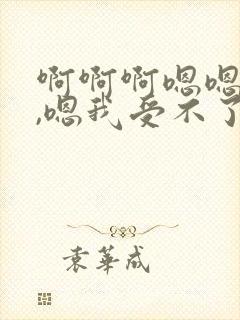 啊啊啊嗯嗯
,嗯我受不了
袁华成